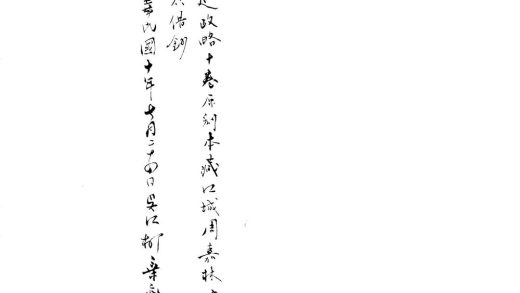 政略十卷原刻本藏江城周嘉林
借鈔
民國十年七月二十四日吳江柳棄